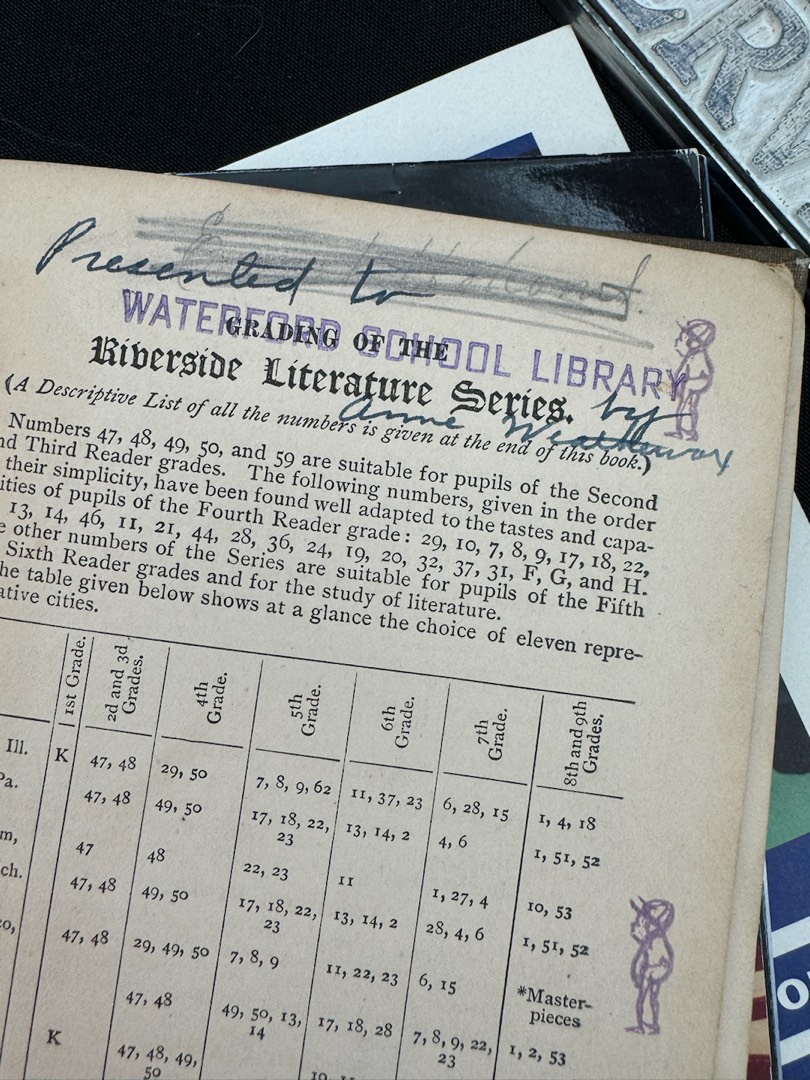 Presented to
WATERFORD SCHOOL LIBRARY
GRADING OF THE
Riverside Literature Series.
by
(A Descriptive List of all the numbers is given at the end of this book.)
Anne Weatherwax
Numbers 47, 48, 49, 50, and 59 are suitable for pupils of the Second
nd Third Reader grades. The following numbers, given in the order
their simplicity, have been found well adapted to the tastes and capa-
ities of pupils of the Fourth Reader grade: 29, 10, 7, 8, 9, 17, 18, 22,
13, 14, 46, 11, 21, 44, 28, 36, 24, 19, 20, 32, 37, 31, F, G, and H.
e other numbers of the Series are suitable for pupils of the Fifth
Sixth Reader grades and for the study of literature.
he table given below shows at a glance the choice of eleven repre-
ative cities.
1st Grade. 2d and 3d Grades. 4th Grade. 5th Grade. 6th Grade. 7th Grade. 8th and 9th Grades.
Ill. K 47, 48 29, 50 7, 8, 9, 62 11, 37, 23 6, 28, 15 1, 4, 18
Pa. 47, 48 49, 50 17, 18, 22, 23 13, 14, 2 4, 6 1, 51, 52
m, 47 48 22, 23 11 1, 27, 4 10, 53
ch. 47, 48 49, 50 17, 18, 22, 23 13, 14, 2 28, 4, 6 1, 51, 52
co, 47, 48 29, 49, 50 7, 8, 9 11, 22, 23 6, 15 *Master-pieces
47, 48 49, 50, 13, 14 17, 18, 28 7, 8, 9, 22, 23 1, 2, 53
K 47, 48, 49, 50